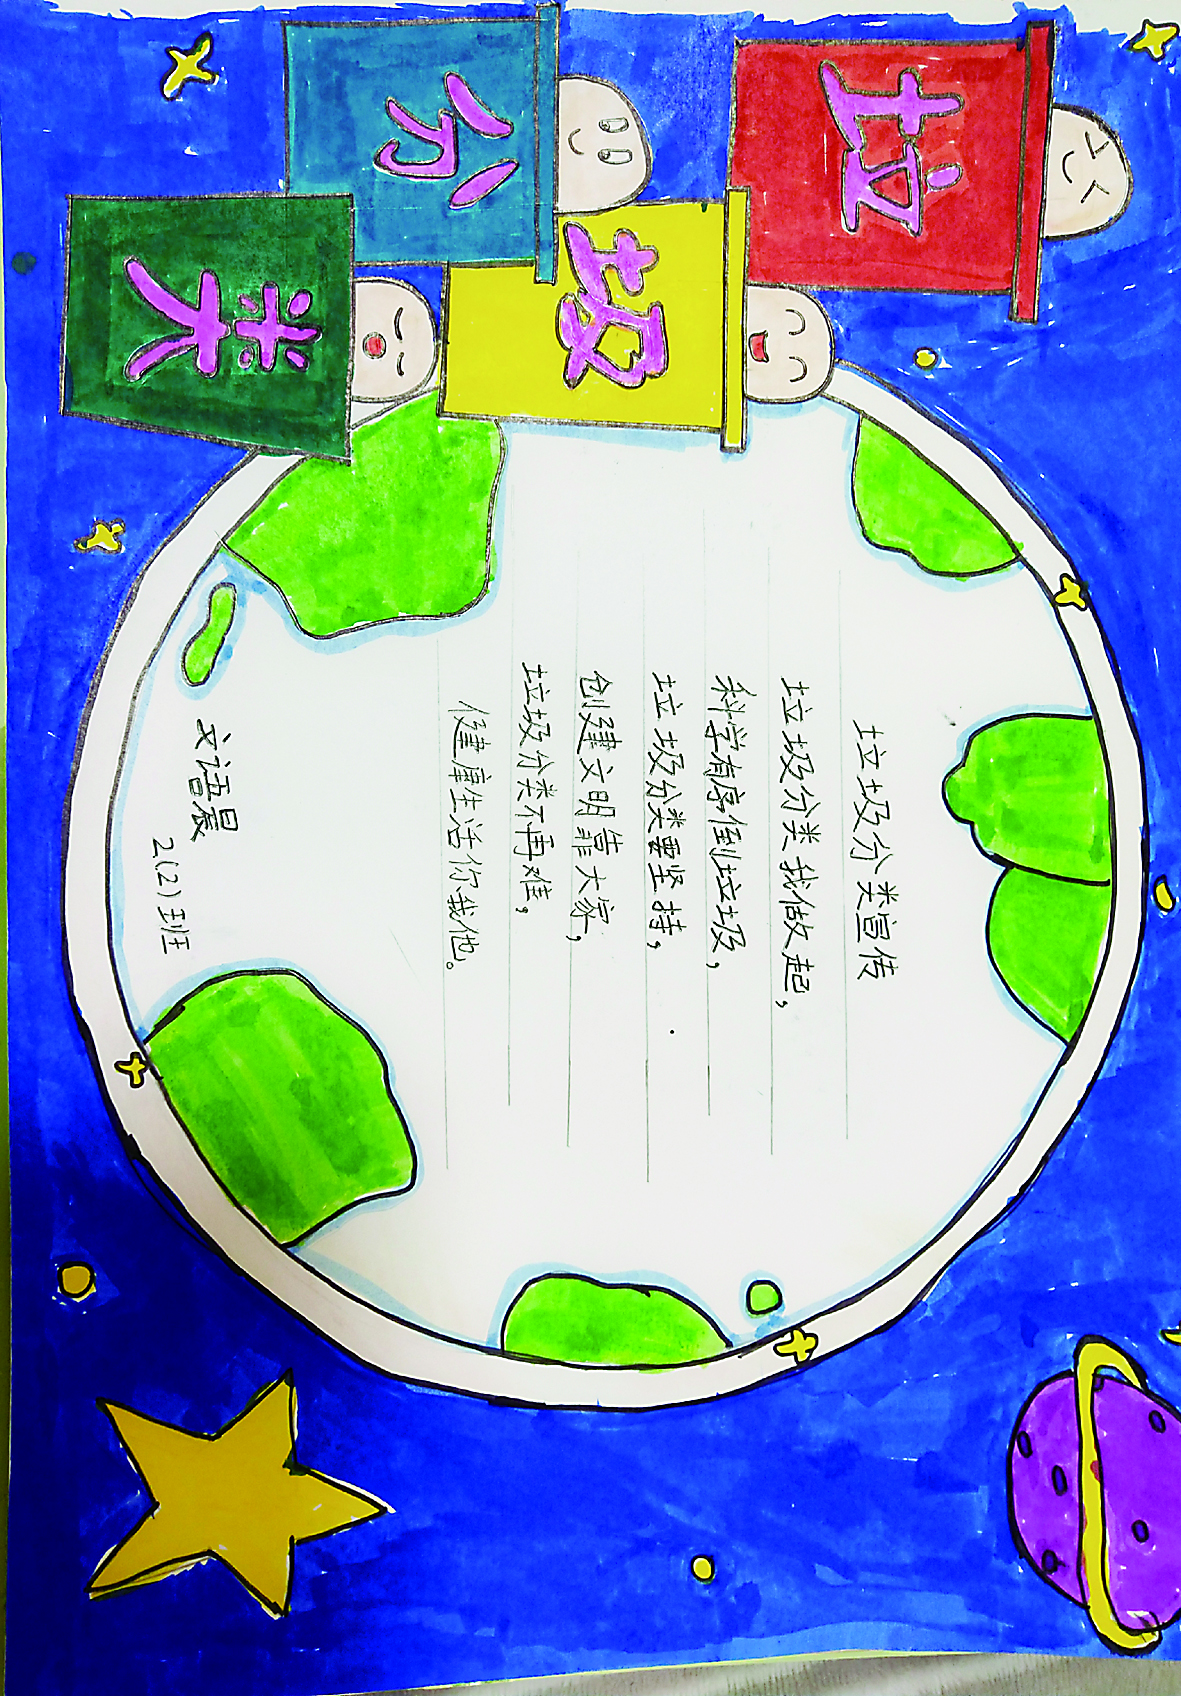 垃圾分类
垃圾分类宣传
垃圾分类我做起,
科学有序倒垃圾,
垃圾分类要坚持,
创建文明靠大家,
垃圾分类不再难,
健康生活你我他。
文语晨
2(2)班